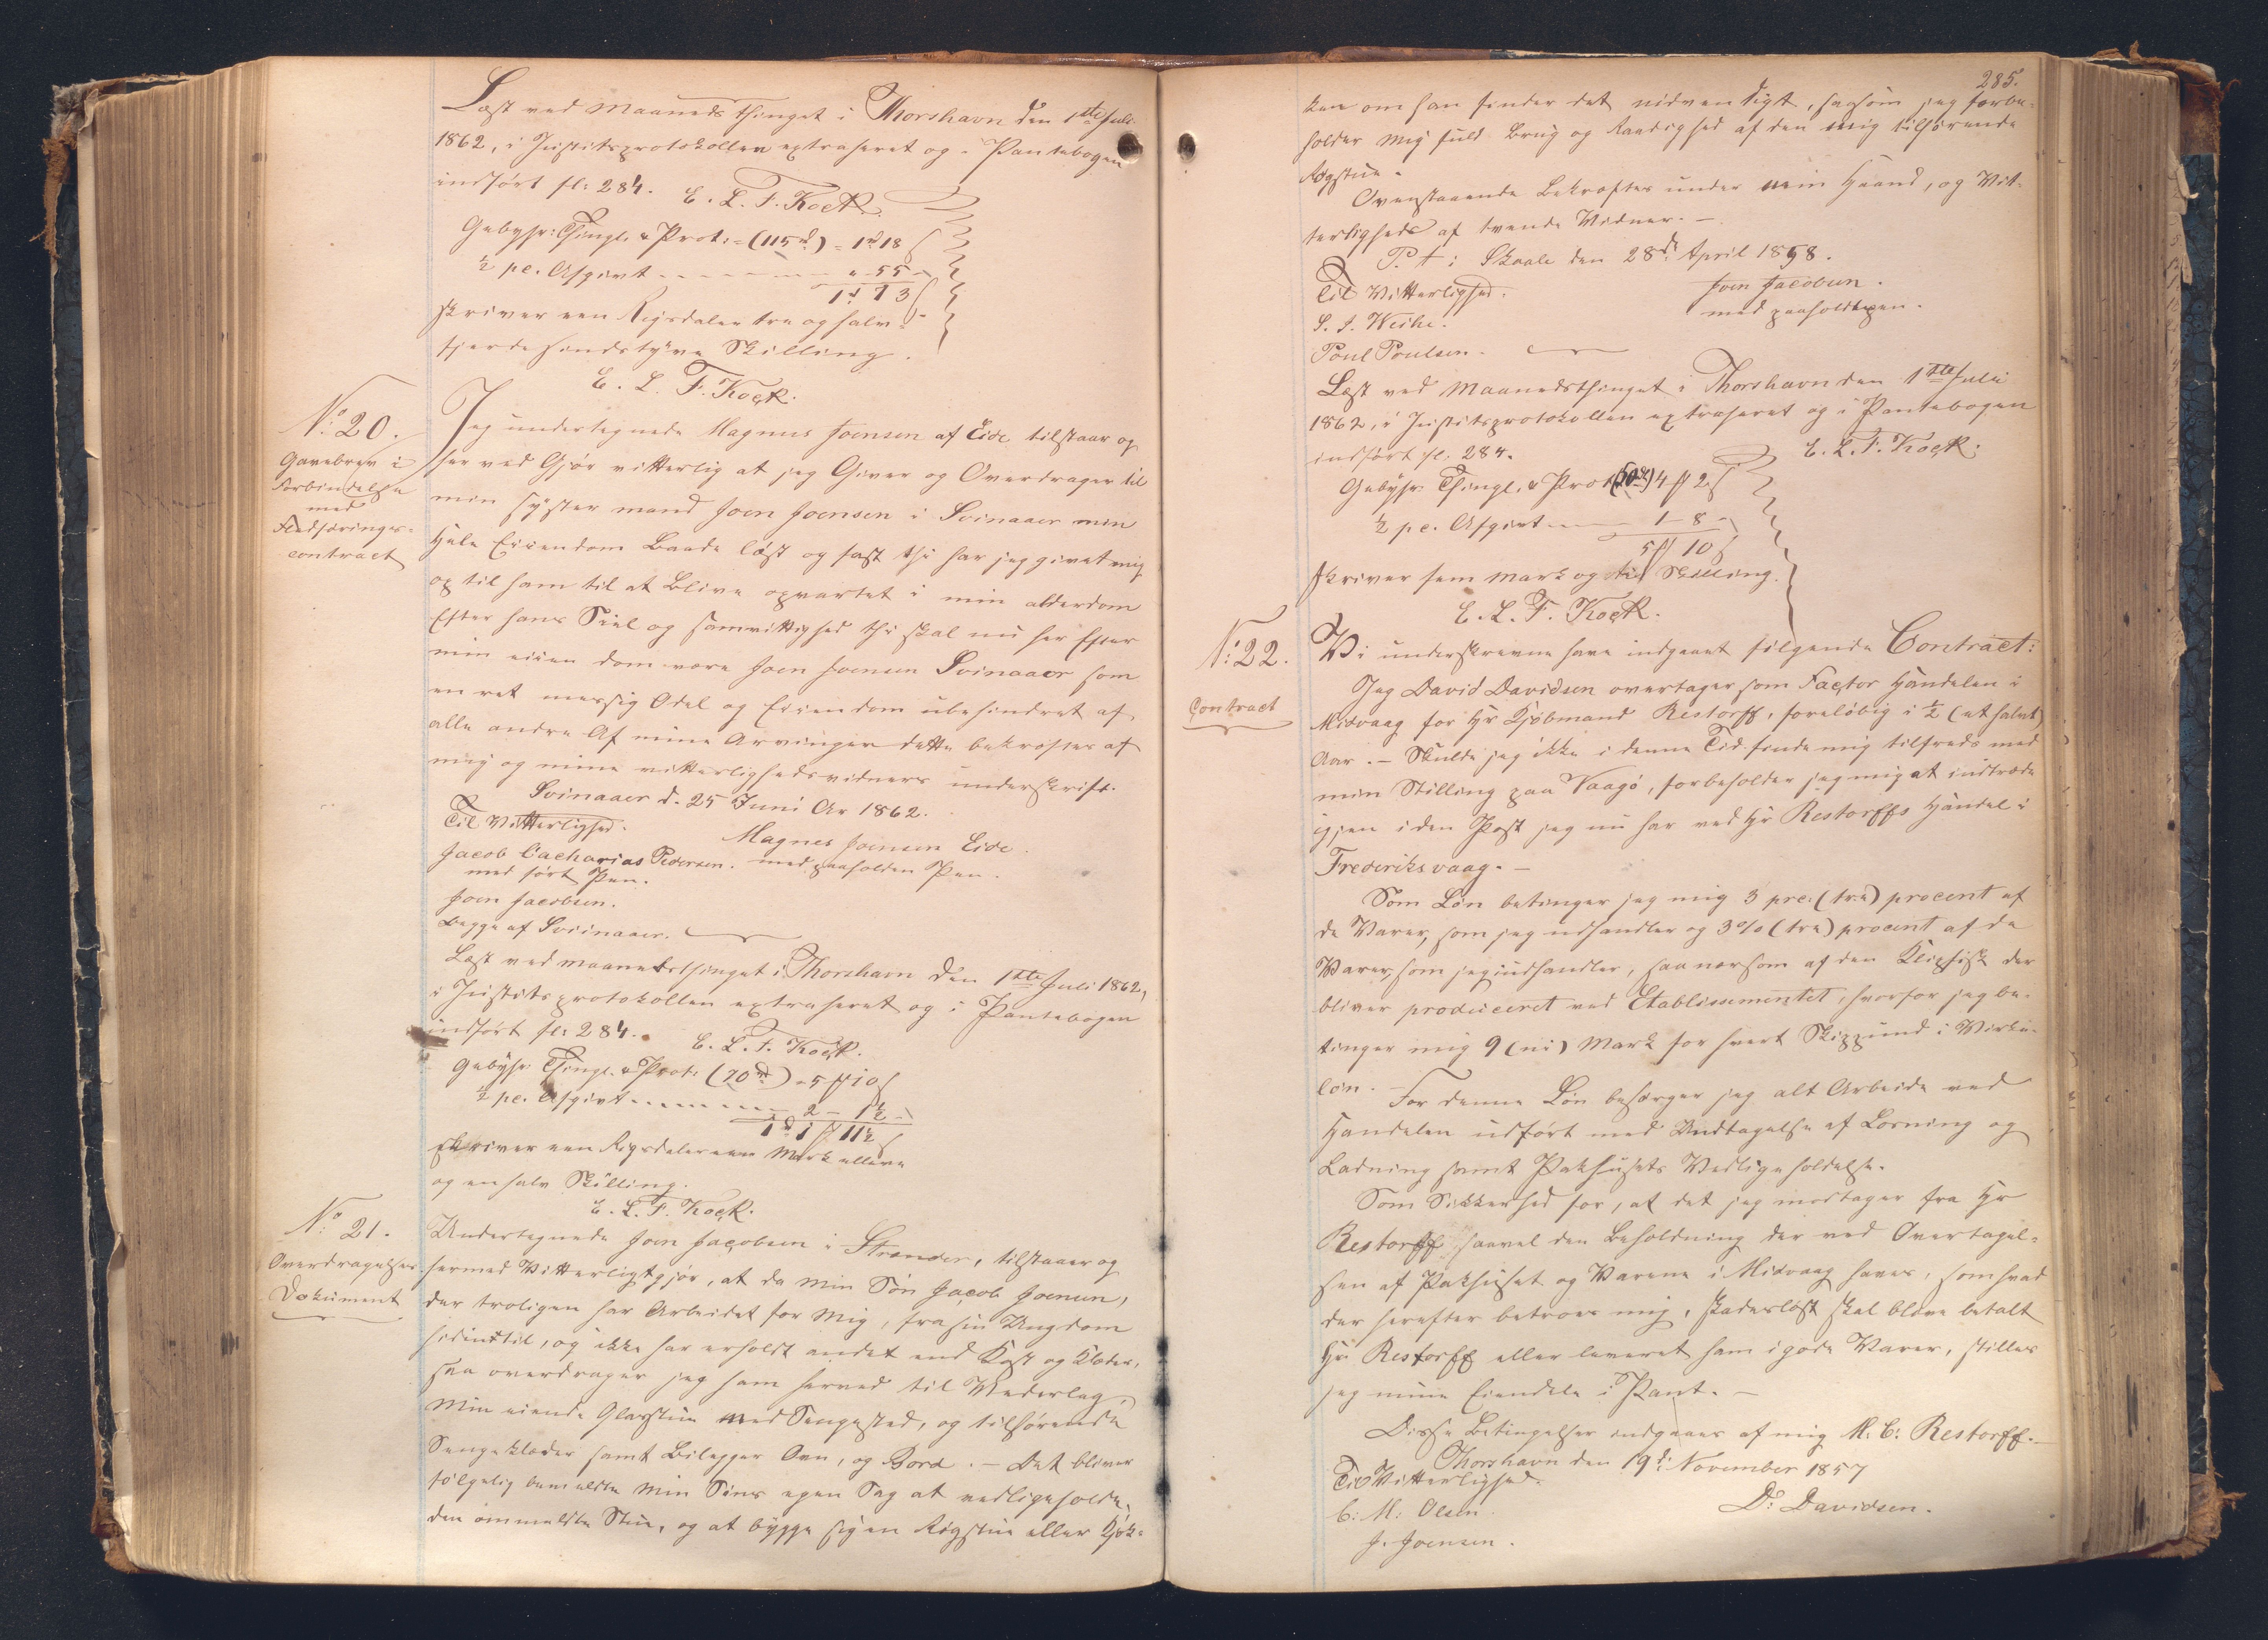 Læst ved Maanedsthinget i Thorshavn den 1ste Juli
1862, i Justitsprotokollen extraheret og i Pantebogen
indført fl: 284. E. L. F. Kock.
Gebyhr: Thingl. & Prot: = (115 rd) = 1 rd 18 ß
½ pc. Afgivt - - - - - - " - 55 -
1 rd 73 ß
skriver een Rigsdaler tre og halv-
fjerdesindstyve Skilling.
E. L. F. Kock.
No: 20.
Gavebrev i
Forbindelse
med
Fledføringes-
contract
Jeg undertegnede Magnus Joensen af Eide tilstaar og
her ved Gjør vitterlig at jeg Giver og Overdrager til
min syster mand Joen Joensen i Svinaaer min
Hele Eiiendom Baade løst og fast thi har jeg givet mig
op til ham til at Blive opvartet i min alderdom
Efter hans Siel og samvittighed thi skal nu her Efter
min eiien dom være Joen Joensen Svinaaer som
en ret messig Odel og Eiiendom ubehindret af
alle andre Af mine Arvinger dette bekræftes af
mig og mine vitterlighedsvidners underskrift.
Svinaaer d. 25 Juni Ar 1862.
Til Vitterlighed.
Magnes Joensen Eide.
Jacob Cacharias Pedersen. med paaholden Pen.
med ført Pen.
Joen Jacobsen.
Begge af Sviinaaer.
Læst ved Maanedsthinget i Thorshavn den 1ste Juli 1862,
i Justitsprotokollen extraheret og i Pantebogen
indført fl: 284. E. L. F. Kock.
Gebyhr Thingl. & Prot: (70 rd) = 5 ƒ 10 ß
½ pc. Afgivt - - - - - - 2 - 1½ -
1 rd 1 ƒ 11½ ß
skriver een Rigsdaler een Mark elleve
og en halv Skilling.
E. L. F. Kock.
No: 21.
Overdragelses
Dokument
Undertegnede Joen Jacobsen i Strender, tilstaaer og
hermed Vitterligtgjør, at da Min Søn Jacob Joensen,
der troligen har Arbeidet for Mig, fra sin Ungdom
hidindtil, og ikke har erholdt andet end Kost og Klæder,
saa overdrager jeg ham herved til Vederlag,
Min eiende Glasstue med Sengested, og tilhørende
Sengeklæder samt Bilegger Ovn, og Bord. - Det bliver
følgelig bemeldte Min Søns egen Sag at vedligeholde
den ommeldte Stue, og at bygge sig en Røgstue eller Kjøk-
285.
ken om han finder det nødvendigt, saasom jeg forbe-
holder Mig fuld Brug og Raadighed af den mig tilhørende
Røgstue.
Ovenstaaende Bekræftes under min Haand, og Vit-
terligheds af tvende Vidner. -
P. t: Skaale den 28de April 1858.
Til Vitterlighed.
Joen Jacobsen.
S. J. Weihe.
med paaholdtepen.
Poul Poulsen.
Læst ved Maanedsthinget i Thorshavn den 1ste Juli
1862, i Justitsprotokollen extraheret og i Pantebogen
indført fl: 284.
E. L. F. Kock.
Gebyhr: Thingl. & Prot (50 rd) 4 ƒ 2 ß
½ pc. Afgivt - - - 1 - 8 -
5 ƒ 10 ß
skriver fem Mark og ti Skilling.
E. L. F. Kock.
No: 22.
Contract
Vi underskrevne have indgaaet følgende Contract:
Jeg David Davidsen overtager som Factor Handelen i
Midvaag for Hr Kjøbmand Restorff, foreløbig i ½ (et halvt)
Aar. - Skulde jeg ikke i denne Tid finde mig tilfreds med
min Stilling paa Vaagø, forbeholder jeg mig at indtræde
igjen i den Post jeg nu har ved Hr Restorffs Handel i
Frederiksvaag. -
Som Løn betinger jeg mig 3 prc. (tre) procent af
de Varer, som jeg udhandler og 3% (tre) procent af de
Varer, som jeg indhandler, saa nær som af den Klipfisk der
bliver produceret ved Etablissementet, hvorfor jeg be-
tinger mig 9 (ni) Mark for hvert Skippund i Virke-
løn. - For denne Løn besørger jeg alt Arbeide ved
Handelen udført med Undtagelse af Losning og
Ladning samt Pakhusets Vedligeholdelse.
Som Sikkerhed for, at det jeg modtager fra Hr
Restorff saavel den Beholdning der ved Overtagel-
sen af Pakhuset og Varene i Midvaag haves, som hvad
der herefter betroes mig, skadesløst skal blive betalt
Hr Restorff eller leveret ham i gode Varer, stilles
jeg mine Eiendele i Pant. -
Disse Betingelser indgaaes af mig M. C. Restorff. -
Thorshavn den 19de November 1857
Til Vitterlighed.
C: M: Olsen.
D: Davidsen.
J. Joensen.